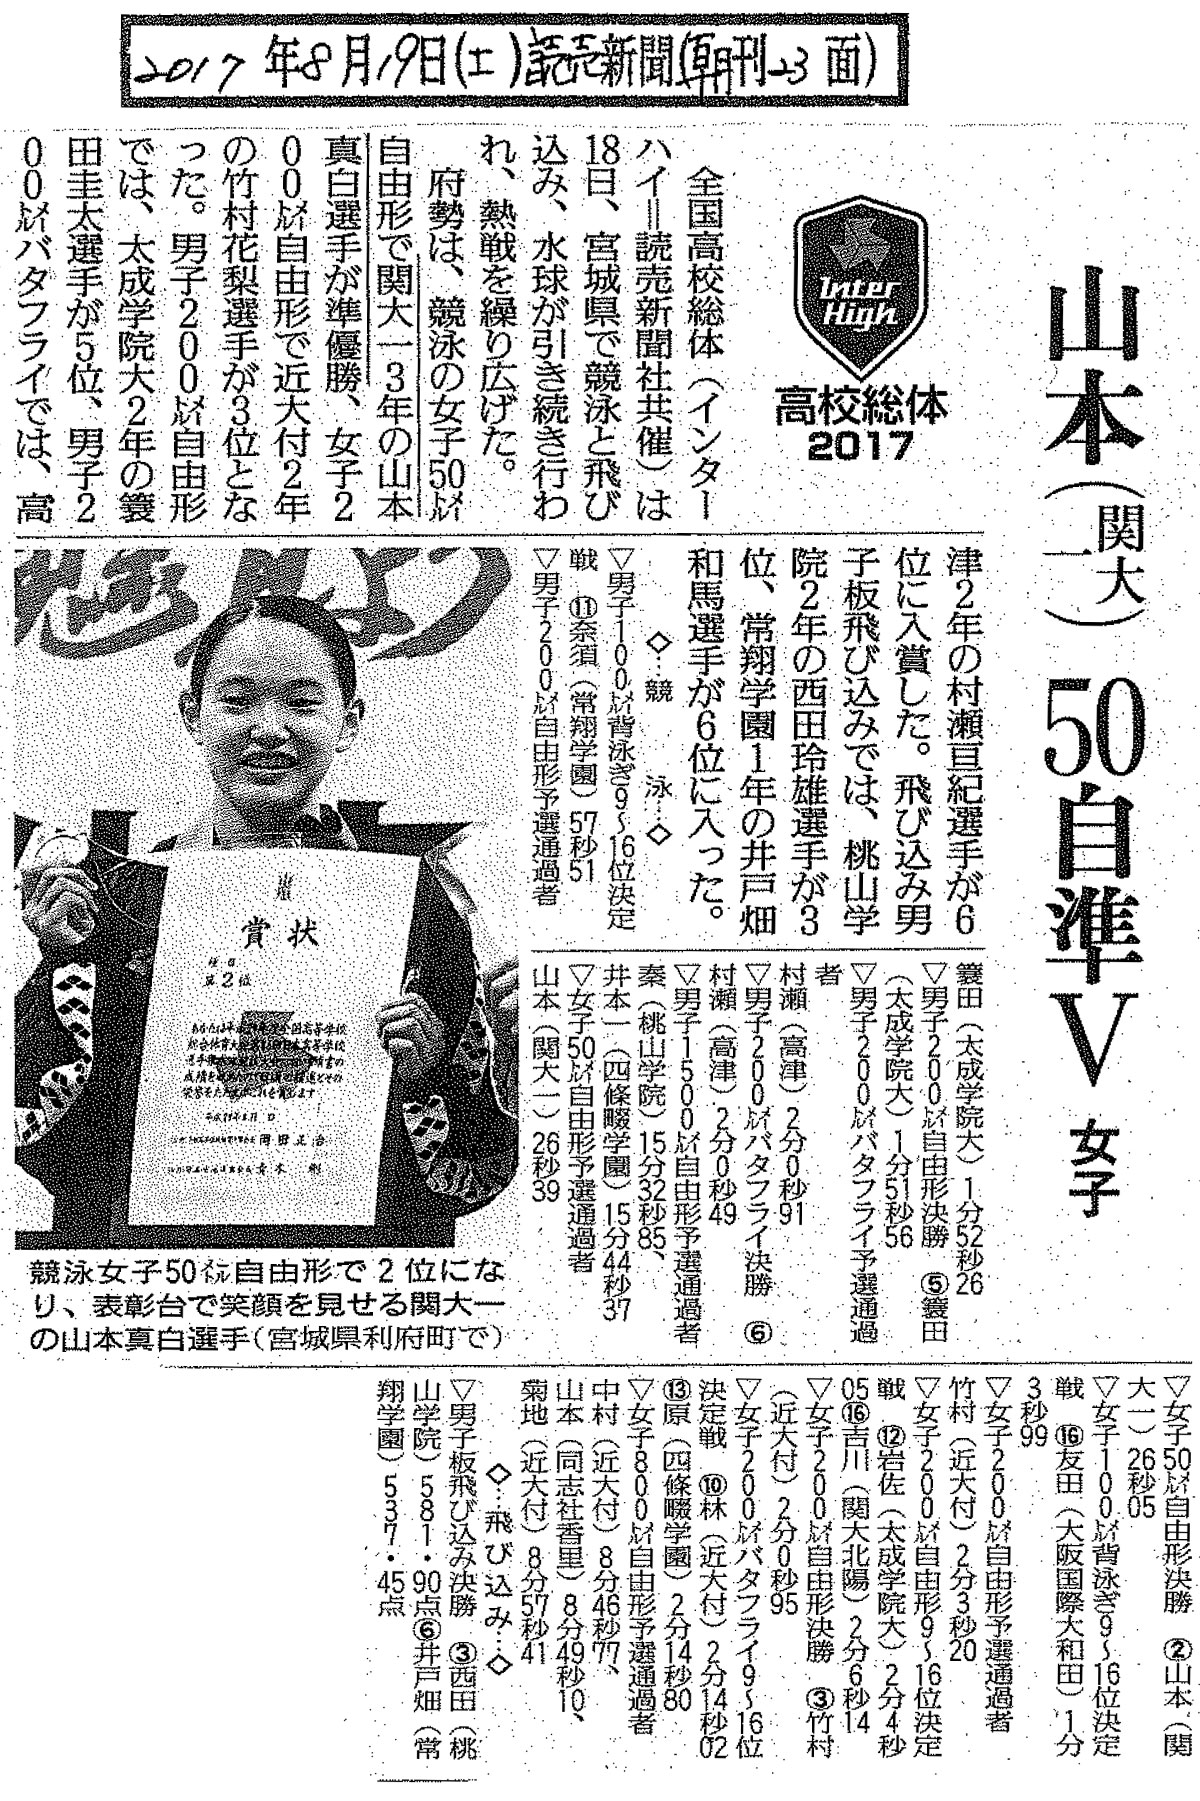 2017年8月19日(土)読売新聞(朝刊23面)
山本(関大一)50自準V 女子
Inter
High
高校総体
2017
全国高校総体(インター
ハイ=読売新聞社共催)は
18日、宮城県で競泳と飛び
込み、水球が引き続き行わ
れ、熱戦を繰り広げた。
府勢は、競泳の女子50㍍
自由形で関大一3年の山本
真白選手が準優勝、女子2
00㍍自由形で近大付2年
の竹村花梨選手が3位とな
った。男子200㍍自由形
では、太成学院大2年の簑
田圭太選手が5位、男子2
00㍍バタフライでは、高
津2年の村瀬亘紀選手が6
位に入賞した。飛び込み男
子板飛び込みでは、桃山学
院2年の西田玲雄選手が3
位、常翔学園1年の井戸畑
和馬選手が6位に入った。
◇…競 泳…◇
▽男子100㍍背泳ぎ9~16位決定
戦 ⑪奈須(常翔学園)57秒51
▽男子200㍍自由形予選通過者
簑田(太成学院大)1分52秒26
▽男子200㍍自由形決勝 ⑤簑田
(太成学院大)1分51秒56
▽男子200㍍バタフライ予選通過
者
村瀬(高津)2分0秒91
▽男子200㍍バタフライ決勝 ⑥
村瀬(高津)2分0秒49
▽男子1500㍍自由形予選通過者
秦(桃山学院)15分32秒85、
井本一(四條畷学園)15分44秒37
▽女子50㍍自由形予選通過者
山本(関大一)26秒39
▽女子50㍍自由形決勝 ②山本(関
大一)26秒05
▽女子100㍍背泳ぎ9~16位決定
戦 ⑯友田(大阪国際大和田)1分
3秒99
▽女子200㍍自由形予選通過者
竹村(近大付)2分3秒20
▽女子200㍍自由形9~16位決定
戦 ⑫岩佐(太成学院大)2分4秒
05⑯吉川(関大北陽)2分6秒14
▽女子200㍍自由形決勝 ③竹村
(近大付)2分0秒95
▽女子200㍍バタフライ9~16位
決定戦 ⑩林(近大付)2分14秒02
⑬原(四條畷学園)2分14秒80
▽女子800㍍自由形予選通過者
中村(近大付)8分46秒77、
山本(同志社香里)8分49秒10、
菊地(近大付)8分57秒41
◇…飛び込み…◇
▽男子板飛び込み決勝 ③西田(桃
山学院)581・90点⑥井戸畑(常
翔学園)537・45点
賞状
種目
第2位
岡田正治
青木剛
競泳女子50㍍自由形で2位にな
り、表彰台で笑顔を見せる関大一
の山本真白選手(宮城県利府町で)